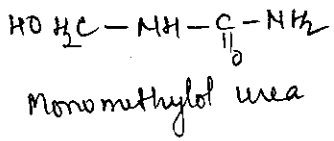 HO H₂C – NH – C – NH₂
||
O
Monomethylol urea